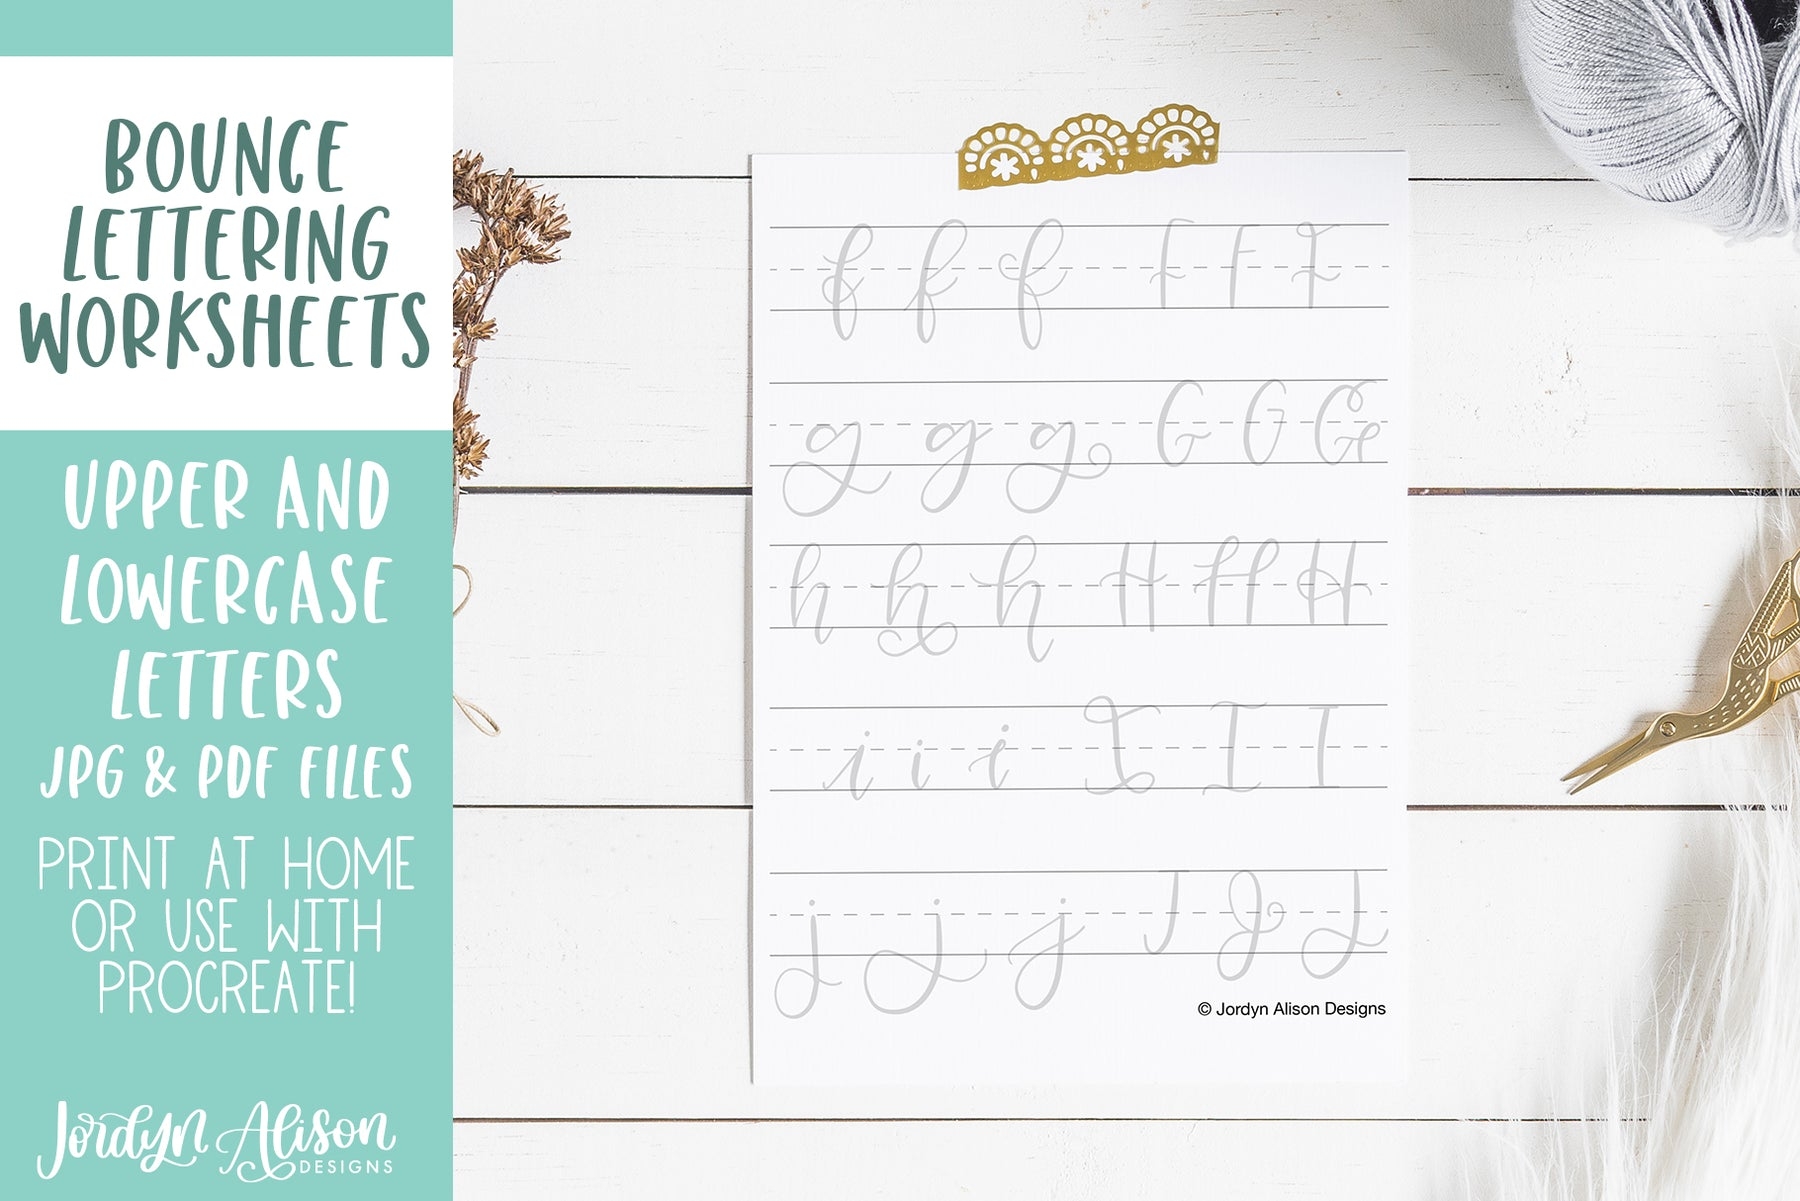 BOUNCE
LETTERING
WORKSHEETS
UPPER AND
LOWERCASE
LETTERS
JPG & PDF FILES
PRINT AT HOME
OR USE WITH
PROCREATE!
Jordyn Alison
DESIGNS
f f f F F F
g g g G G G
h h h H H H
i i i I I I
j j j J J J
© Jordyn Alison Designs